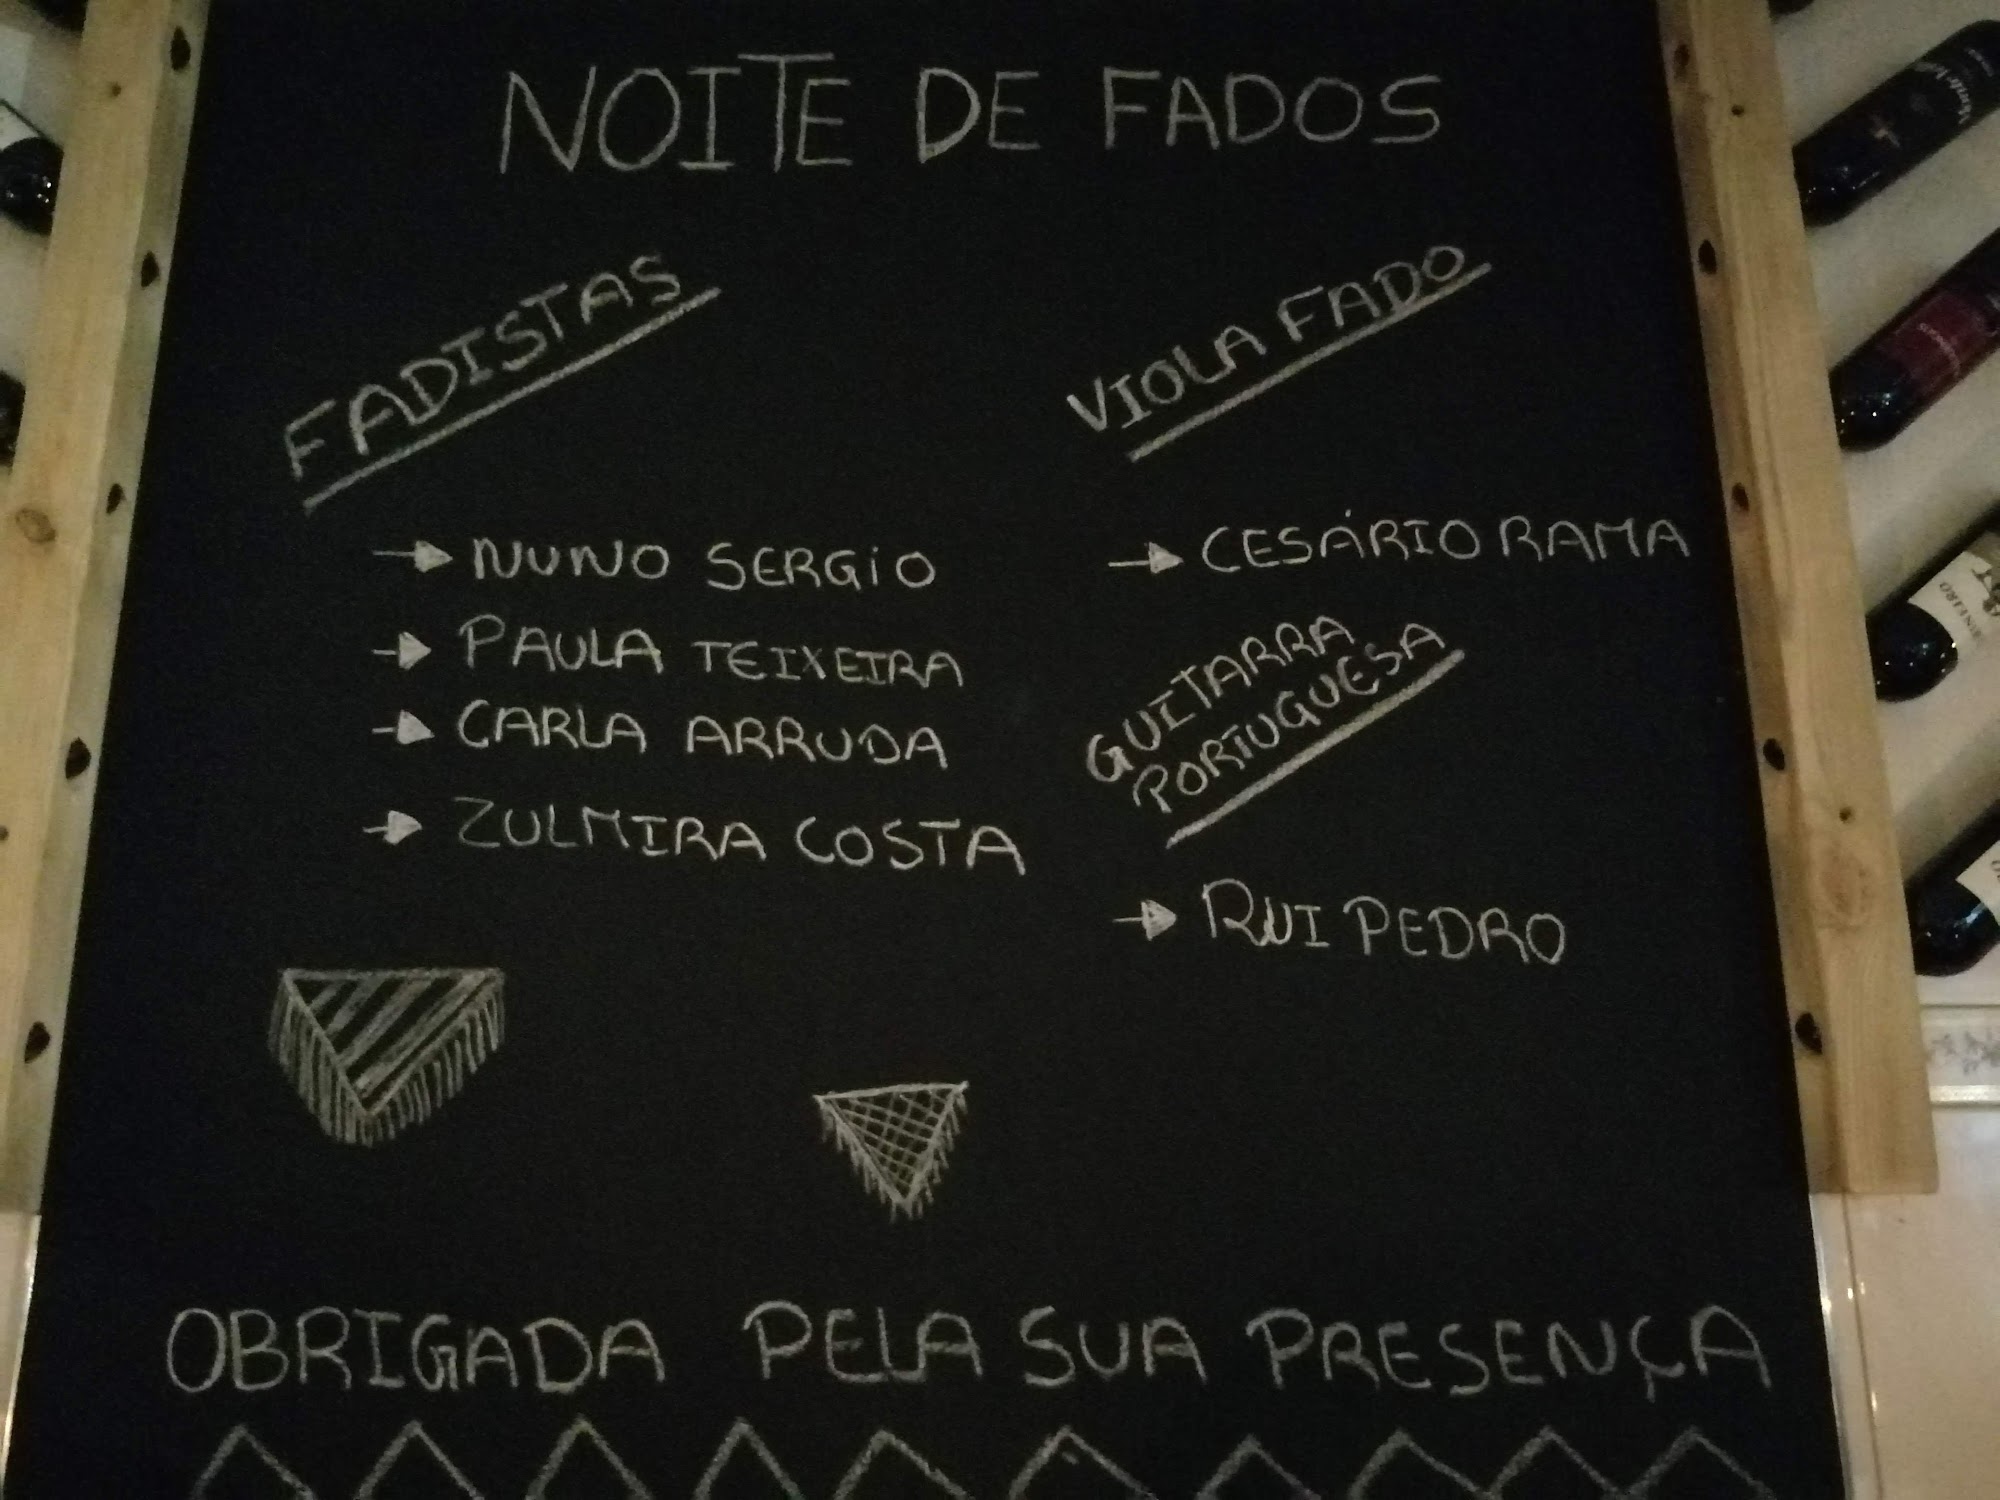 NOITE DE FADOS
FADISTAS
→ NUNO SERGIO
→ PAULA TEIXEIRA
→ CARLA ARRUDA
→ ZULMIRA COSTA
VIOLA FADO
→ CESÁRIO RAMA
GUITARRA
PORTUGUESA
→ RUI PEDRO
OBRIGADA PELA SUA PRESENÇA